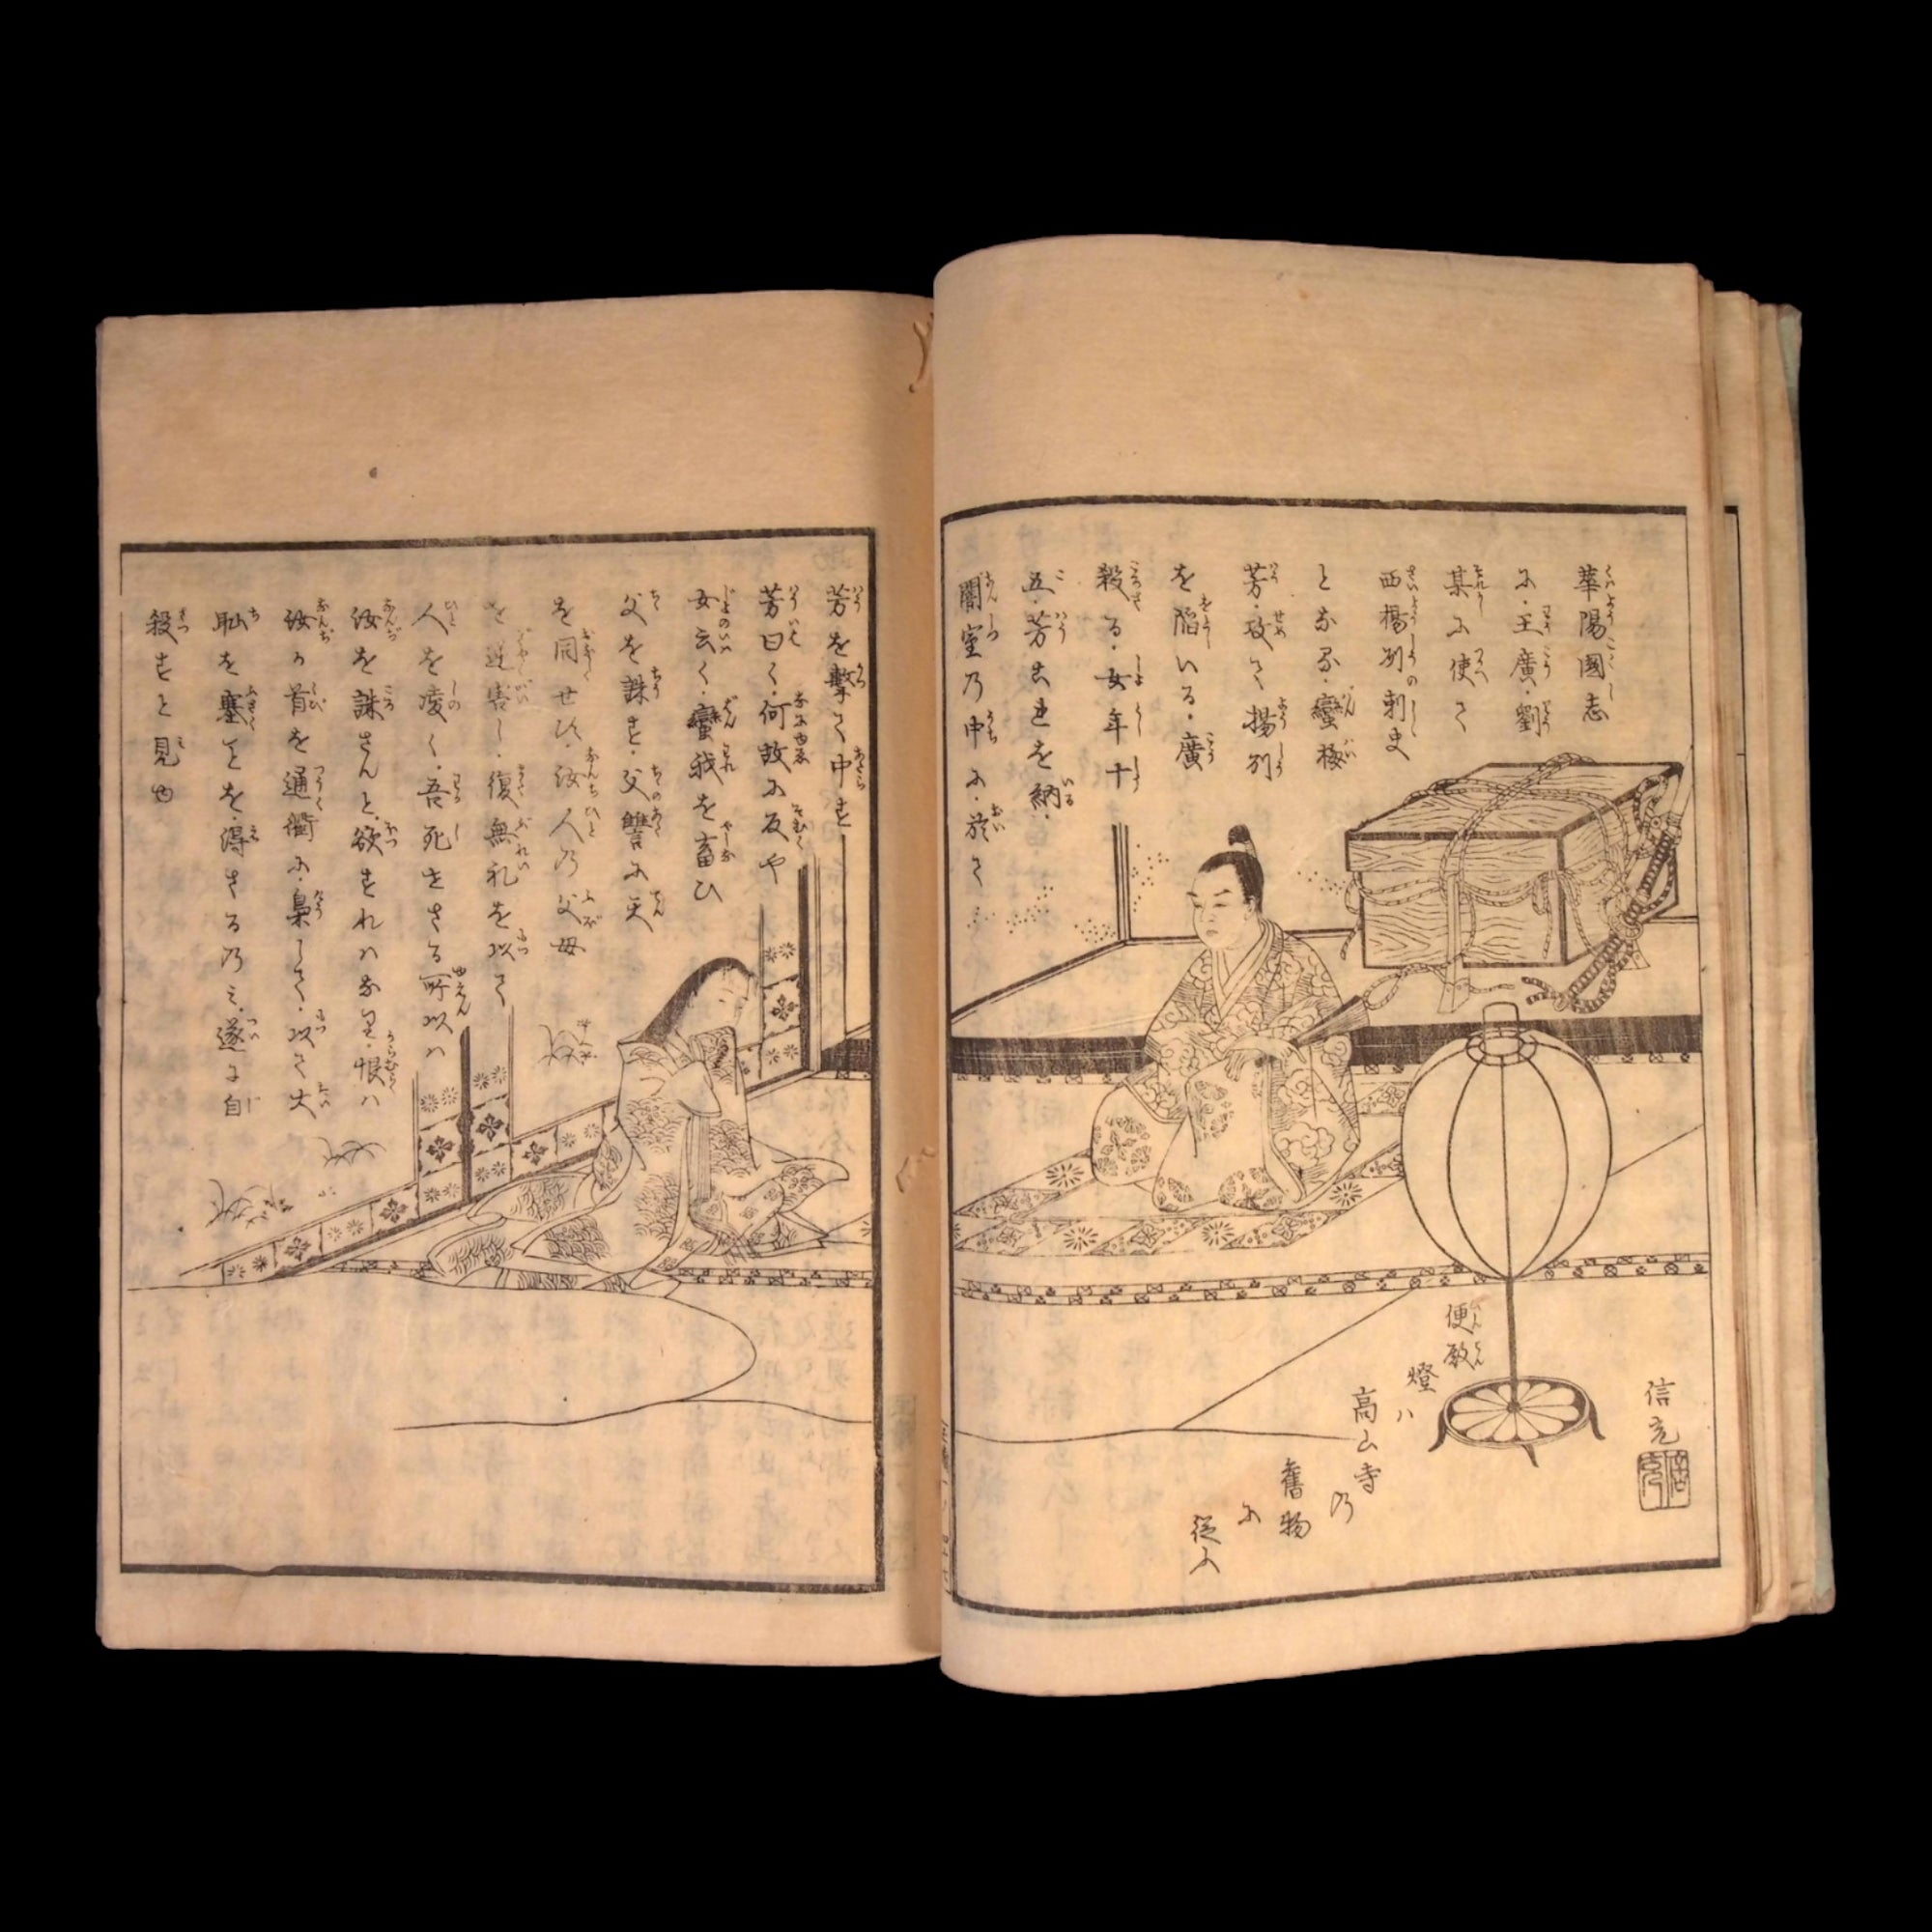 華陽國志
に・王廣・劉
某に使て
西揚刕の刺史
となる・蠻梅
芳・攻て揚刕
を陥いる・廣
殺る・女年十
五・芳これを納・
闇室乃中に・於て
芳を擊て中ず
芳曰く・何故に反や
女云く・蠻我を畜ひ
父を誅す・父讐に天
を同せず・汝人乃父母
を逆害し・復無礼を以て
人を凌く・吾死せさる所以ハ
汝を誅さんと欲すれハなり・恨ハ
汝の首を通衢に・梟して・以て大
耻を塞ことを・得さる乃ミ・遂に自
殺すと見ゆ
便殿
燈ハ
高山寺
乃
舊物
に
従ふ
信充